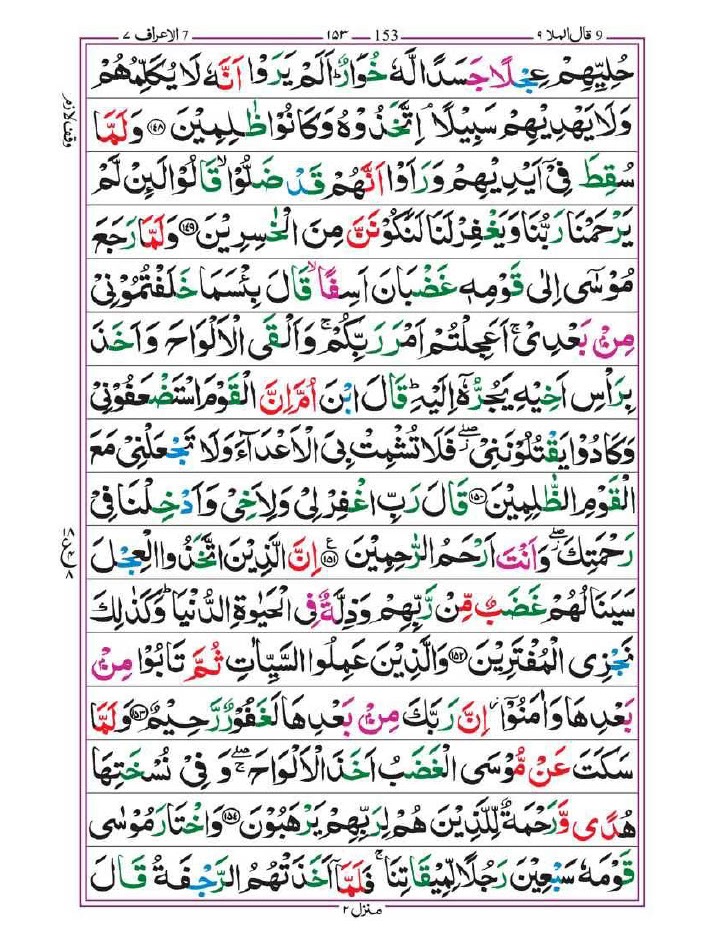 9 قال الملا ٩ — 153 — ١٥٣ — 7 الاعراف ٧
حُلِيِّهِمْ عِجْلًا جَسَدًا لَّهٗ خُوَارٌ ؕ اَلَمْ يَرَوْا اَنَّهٗ لَا يُكَلِّمُهُمْ
وَلَا يَهْدِيْهِمْ سَبِيْلًا ۘ اِتَّخَذُوْهُ وَكَانُوْا ظٰلِمِيْنَ ﴿۱۴۸﴾ وَلَمَّا
وقف لازم
سُقِطَ فِيْۤ اَيْدِيْهِمْ وَرَاَوْا اَنَّهُمْ قَدْ ضَلُّوْا ۙ قَالُوْا لَىِٕنْ لَّمْ
يَرْحَمْنَا رَبُّنَا وَيَغْفِرْ لَنَا لَنَكُوْنَنَّ مِنَ الْخٰسِرِيْنَ ﴿۱۴۹﴾ وَلَمَّا رَجَعَ
مُوْسٰۤى اِلٰى قَوْمِهٖ غَضْبَانَ اَسِفًا ۙ قَالَ بِئْسَمَا خَلَفْتُمُوْنِيْ
مِنْۢ بَعْدِيْ ۚ اَعَجِلْتُمْ اَمْرَ رَبِّكُمْ ۚ وَاَلْقَى الْاَلْوَاحَ وَاَخَذَ
بِرَاْسِ اَخِيْهِ يَجُرُّهٗۤ اِلَيْهِ ؕ قَالَ ابْنَ اُمَّ اِنَّ الْقَوْمَ اسْتَضْعَفُوْنِيْ
وَكَادُوْا يَقْتُلُوْنَنِيْ ۖ فَلَا تُشْمِتْ بِيَ الْاَعْدَآءَ وَلَا تَجْعَلْنِيْ مَعَ
الْقَوْمِ الظّٰلِمِيْنَ ﴿۱۵۰﴾ قَالَ رَبِّ اغْفِرْ لِيْ وَلِاَخِيْ وَاَدْخِلْنَا فِيْ
رَحْمَتِكَ ۖ وَاَنْتَ اَرْحَمُ الرّٰحِمِيْنَ ﴿۱۵۱﴾ اِنَّ الَّذِيْنَ اتَّخَذُوا الْعِجْلَ
سَيَنَالُهُمْ غَضَبٌ مِّنْ رَّبِّهِمْ وَذِلَّةٌ فِي الْحَيٰوةِ الدُّنْيَا ؕ وَكَذٰلِكَ
نَجْزِي الْمُفْتَرِيْنَ ﴿۱۵۲﴾ وَالَّذِيْنَ عَمِلُوا السَّيِّاٰتِ ثُمَّ تَابُوْا مِنْۢ
بَعْدِهَا وَاٰمَنُوْۤا ۫ اِنَّ رَبَّكَ مِنْۢ بَعْدِهَا لَغَفُوْرٌ رَّحِيْمٌ ﴿۱۵۳﴾ وَلَمَّا
سَكَتَ عَنْ مُّوْسَى الْغَضَبُ اَخَذَ الْاَلْوَاحَ ۖۚ وَفِيْ نُسْخَتِهَا
هُدًى وَّرَحْمَةٌ لِّلَّذِيْنَ هُمْ لِرَبِّهِمْ يَرْهَبُوْنَ ﴿۱۵۴﴾ وَاخْتَارَ مُوْسٰى
قَوْمَهٗ سَبْعِيْنَ رَجُلًا لِّمِيْقَاتِنَا ۚ فَلَمَّاۤ اَخَذَتْهُمُ الرَّجْفَةُ قَالَ
منزل ٢